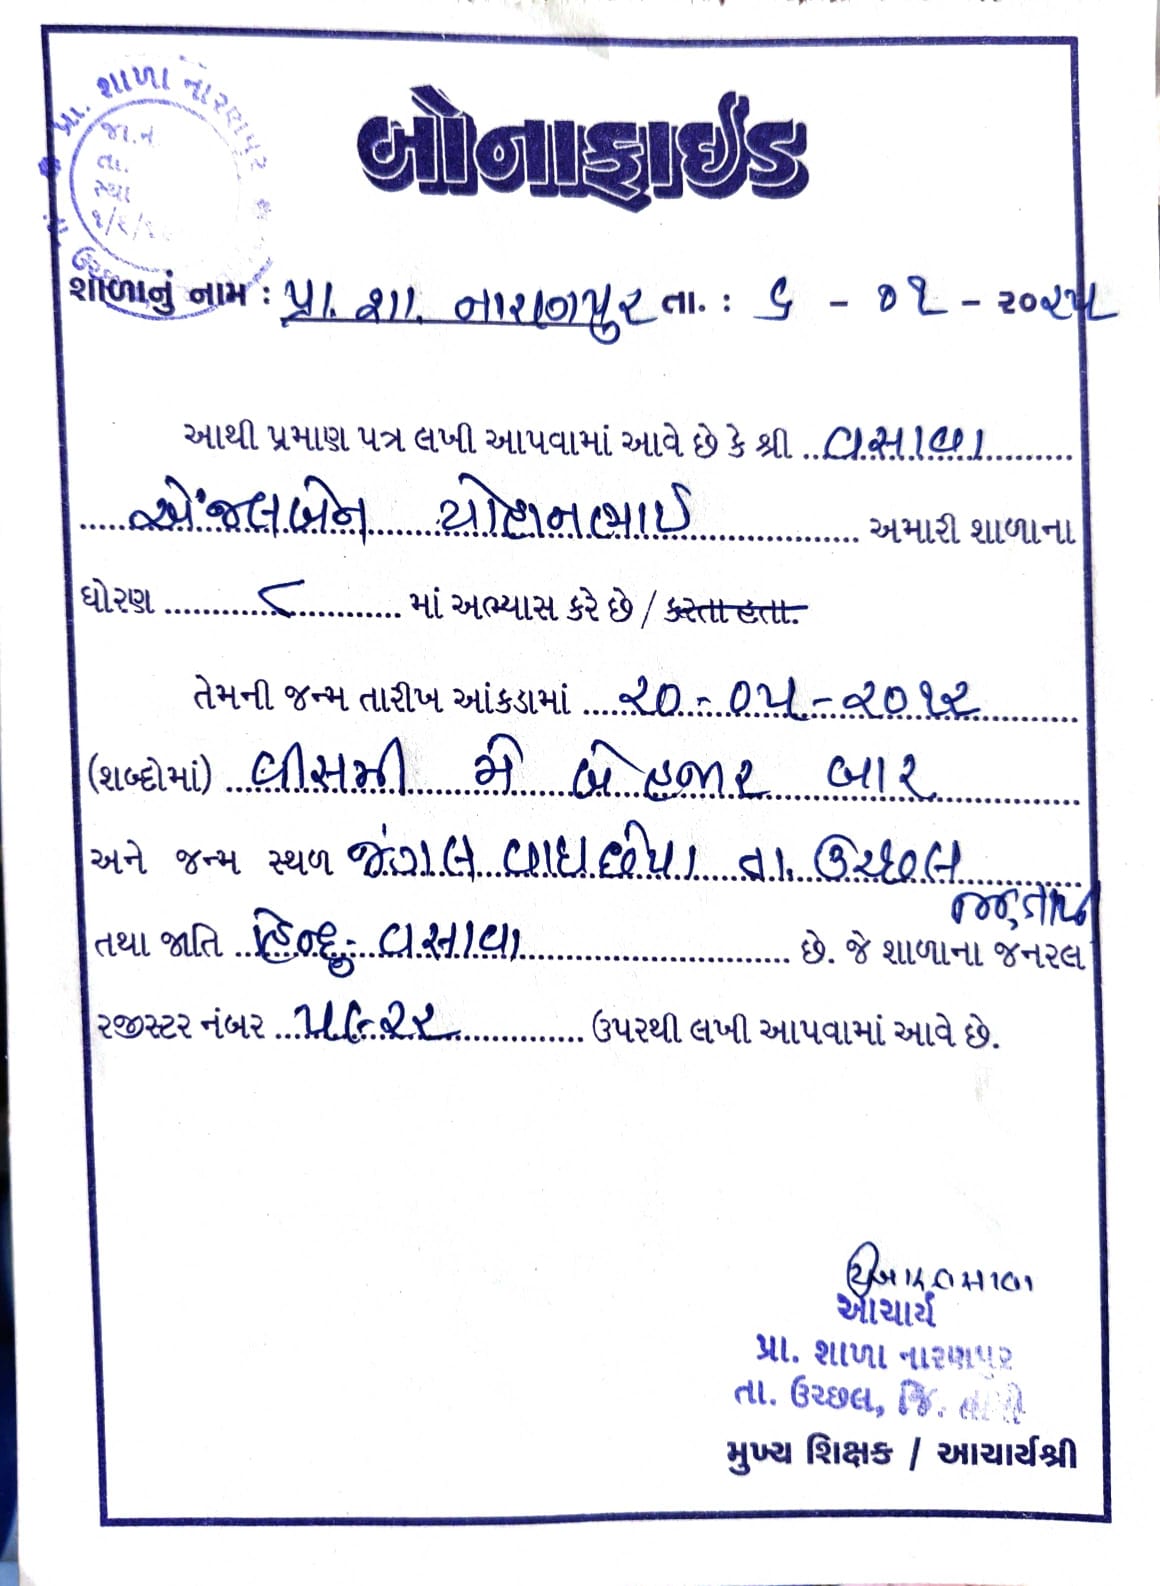 પ્રા. શાળા નારણપુર
જા.ન.
તા.
સ્થા
બોનાફાઈડ
શાળાનું નામ : પ્રા. શા. નારાણપુર તા. : ૬ - ૦૧ - ૨૦૨૫
આથી પ્રમાણ પત્ર લખી આપવામાં આવે છે કે શ્રી વસાવા
એંજલબેન યોહાનભાઈ અમારી શાળાના
ધોરણ ૮ માં અભ્યાસ કરે છે / કરતા હતા.
તેમની જન્મ તારીખ આંકડામાં ૨૦-૦૫-૨૦૧૨
(શબ્દોમાં) વીસમી મે બે હજાર બાર
અને જન્મ સ્થળ જંગલ તા. ઉચ્છલ
તથા જાતિ હિન્દુ- વસાવા છે. જે શાળાના જનરલ
રજીસ્ટર નંબર ઉપરથી લખી આપવામાં આવે છે.
આચાર્ય
પ્રા. શાળા નારણપુર
તા. ઉચ્છલ, જિ. તાપી
મુખ્ય શિક્ષક / આચાર્યશ્રી